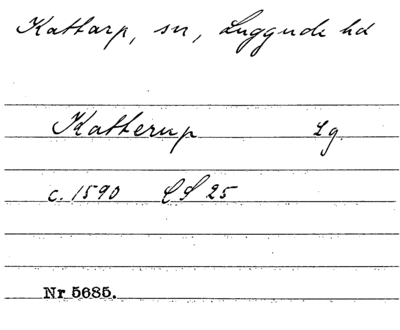 Kattarp, sn, Luggude hd
Katterup Lg.
c. 1590 CS 25
Nr 5685.